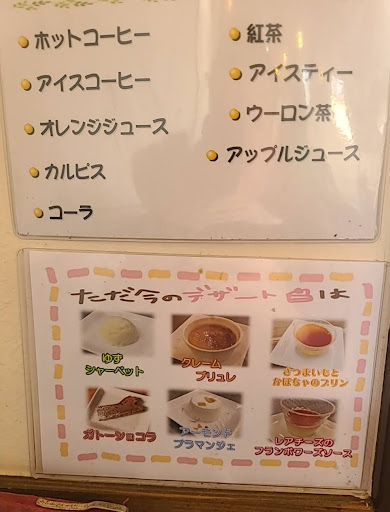 ホットコーヒー
アイスコーヒー
オレンジジュース
カルピス
コーラ
紅茶
アイスティー
ウーロン茶
アップルジュース
ただ今のデザートは
ゆず
シャーベット
クレーム
ブリュレ
さつまいもと
かぼちゃのプリン
ガトーショコラ
アーモンド
ブラマンジェ
レアチーズの
フランボワーズソース